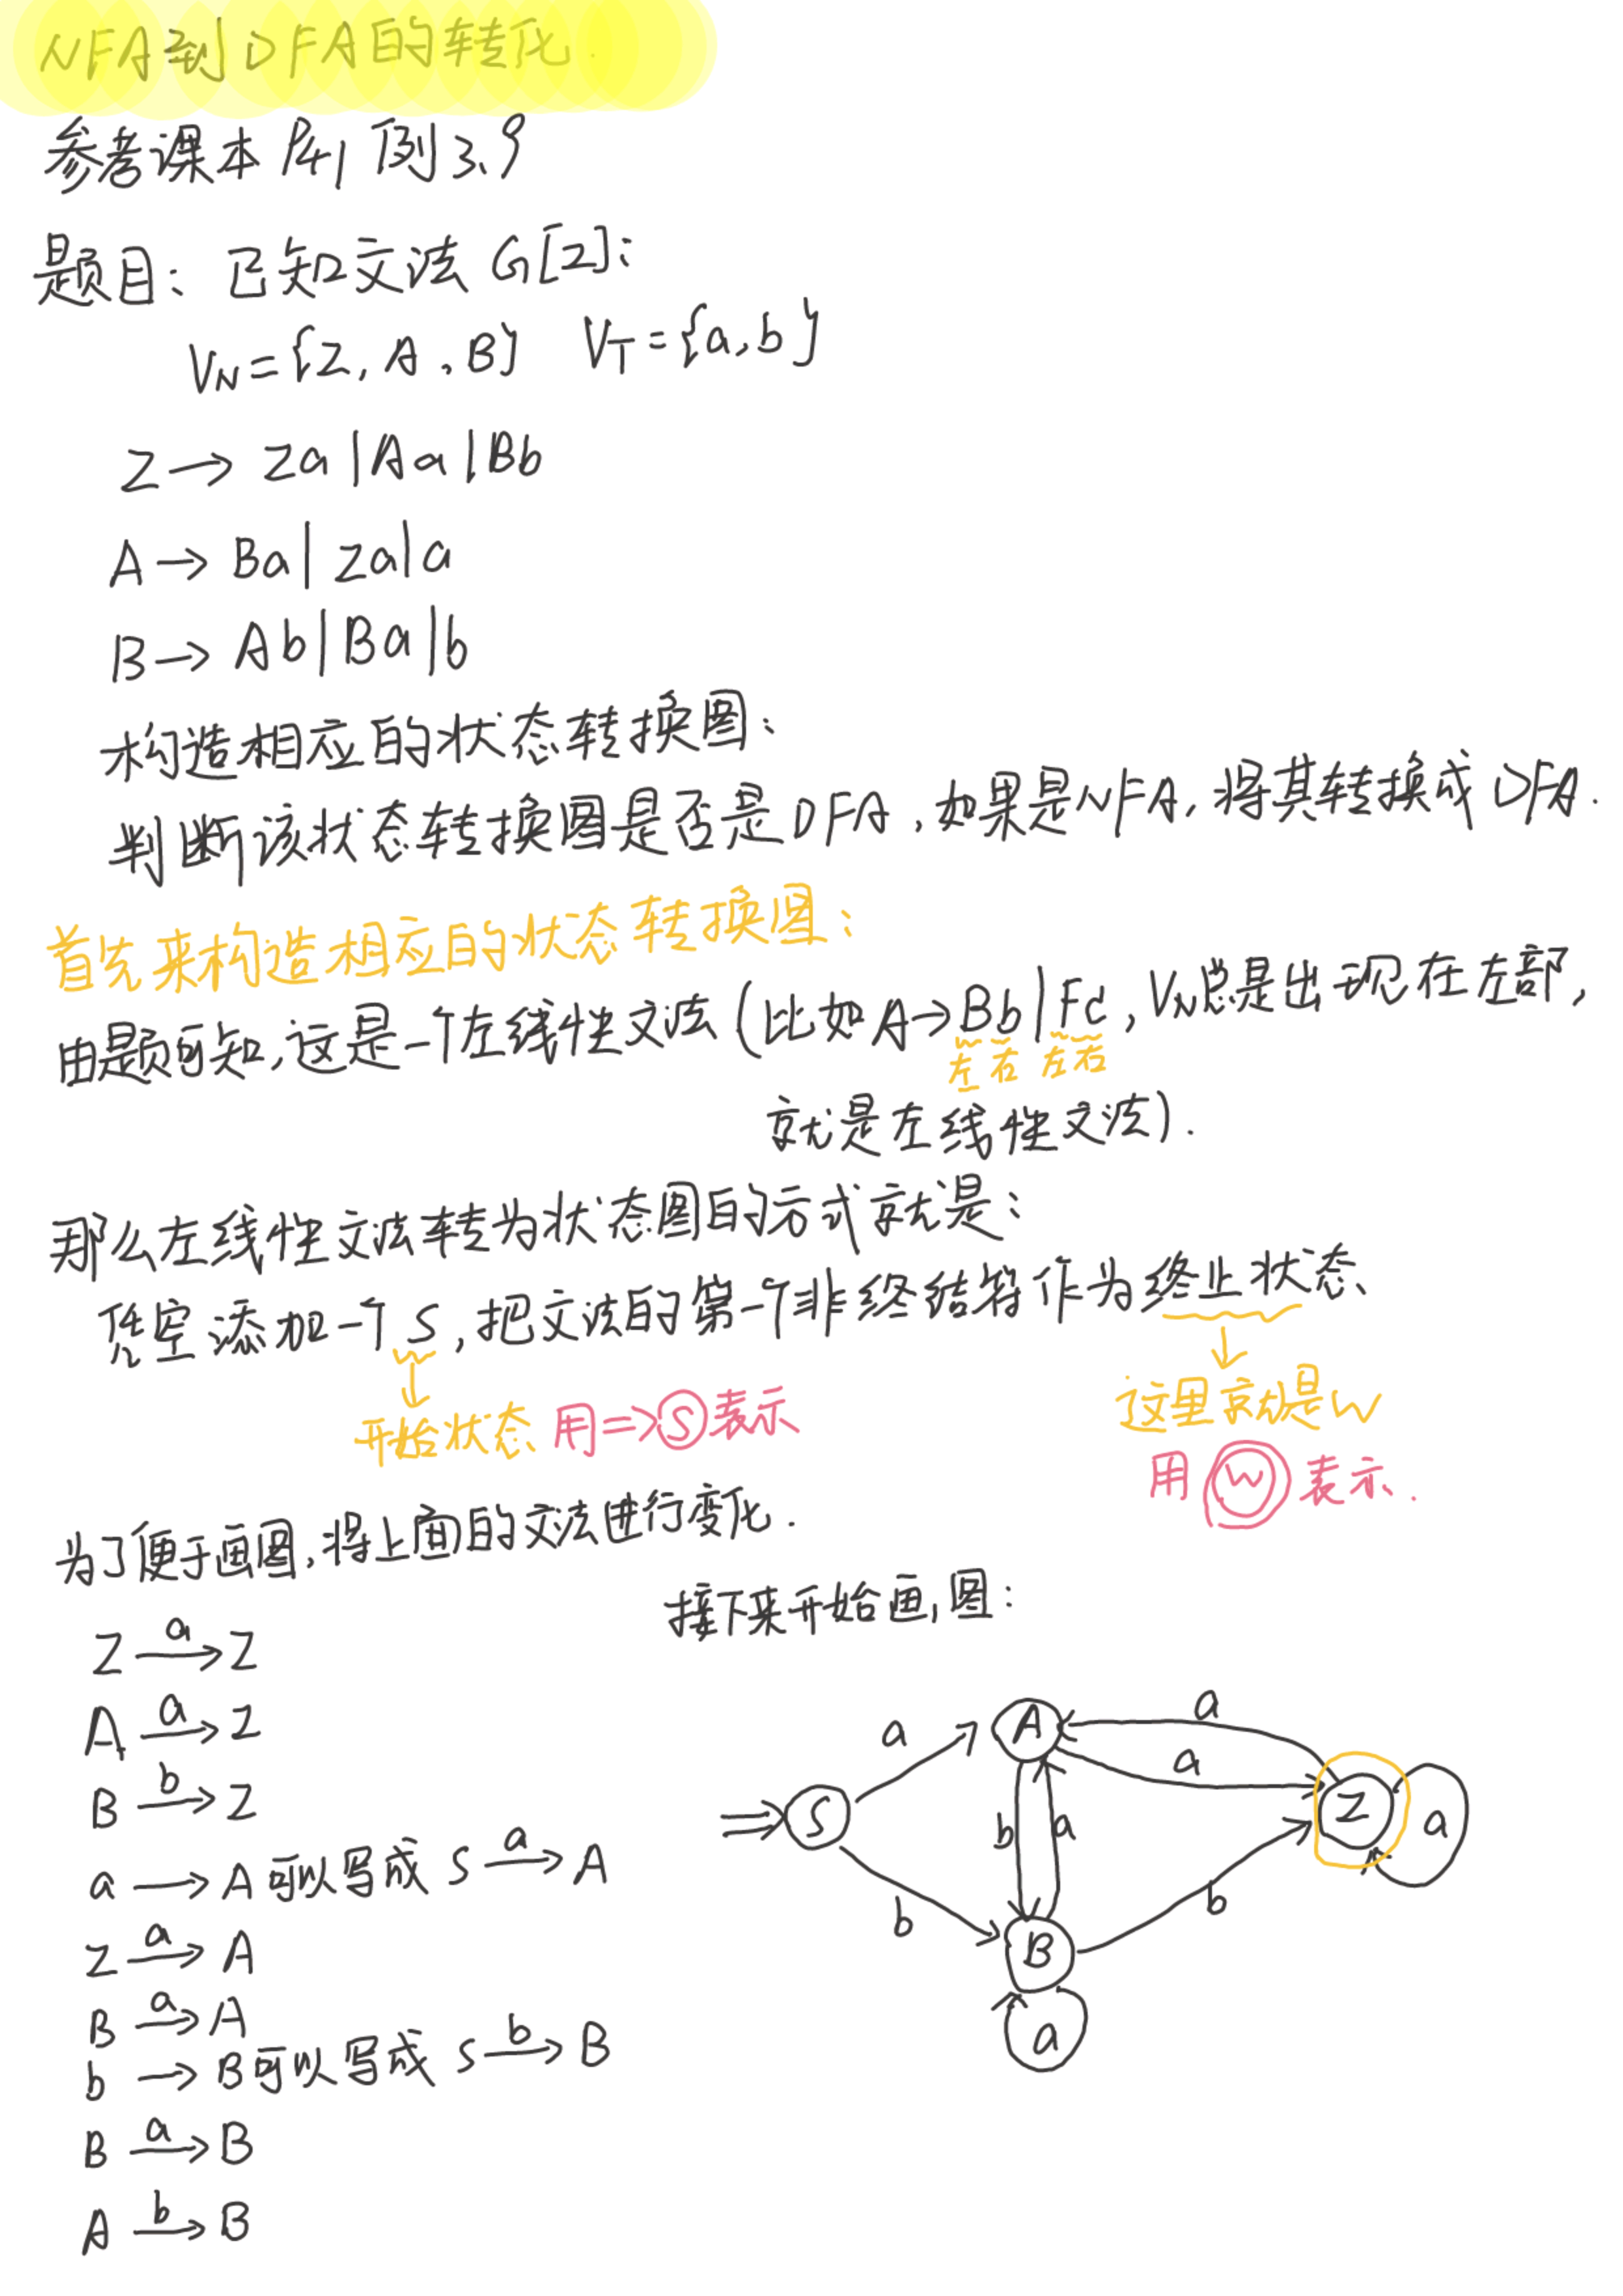 NFA到DFA的转化.
参考课本P41例3.9
题目：已知文法G[Z]：
VN={Z, A, B} VT={a, b}
Z→Za|Aa|Bb
A→Ba|Za|a
B→Ab|Ba|b
构造相应的状态转换图；
判断该状态转换图是否是DFA，如果是NFA，将其转换成DFA.
首先来构造相应的状态转换图：
由题可知，这是一个左线性文法（比如A→Bb|Fc，VN总是出现在左部，
左右 左右
就是左线性文法）.
那么左线性文法转为状态图的方式就是：
凭空添加一个S，把文法的第一个非终结符作为终止状态
↓ ↓
开始状态 用⇒Ⓢ表示 这里就是W
用 W 表示.
为了便于画图，将上面的文法进行变化.
接下来开始画图：
Z a→ Z
A a→ Z
B b→ Z
a → A可以写成 S a→ A
Z a→ A
B a→ A
b → B可以写成 S b→ B
B a→ B
A b→ B
a A a
a
S b a Z a
b b
B
a